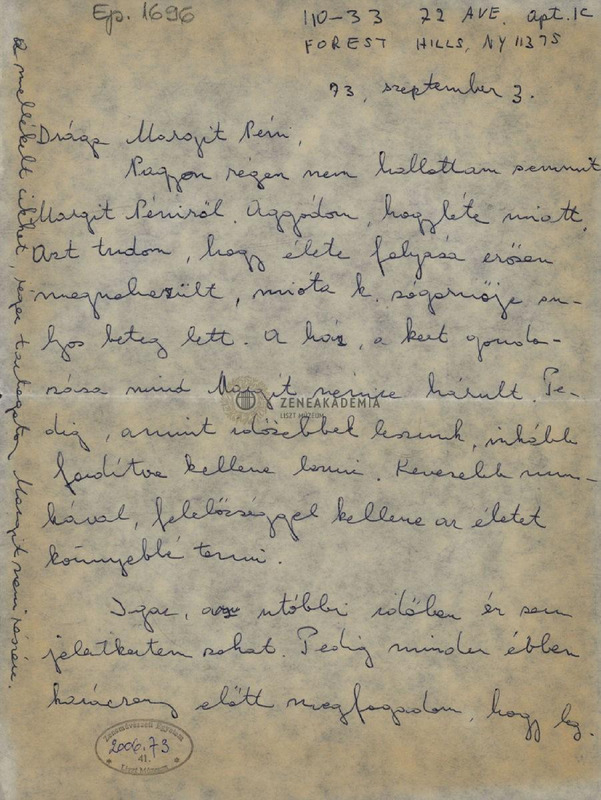 Ep. 1696
110-33 72 AVE. apt. 1C
FOREST HILLS, NY 11375
73, szeptember 3.
Drága Margit Néni,
Nagyon régen nem hallottam semmit
Margit Néniről. Aggódom, hogyléte miatt.
Azt tudom, hogy élete folyása erősen
megnehezült, mióta k. sógornője su-
lyos beteg lett. A ház, a kert gondo-
zása mind Margit nénire hárult. Pe-
dig, amint idősebbek leszünk, inkább
fordítva kellene lenni. Kevesebb mun-
kával, felelősséggel kellene az életet
könnyebbé tenni.
Igaz, az utóbbi időben én sem
jelentkeztem sokat. Pedig minden évben
karácsony előtt megfogadom, hogy leg.
A mellékelt cikket, régen tartogatom Margit néni részére.
ZENEAKADÉMIA
LISZT MÚZEUM
Zeneművészeti Egyetem
2006.73
41.
Liszt Múzeum